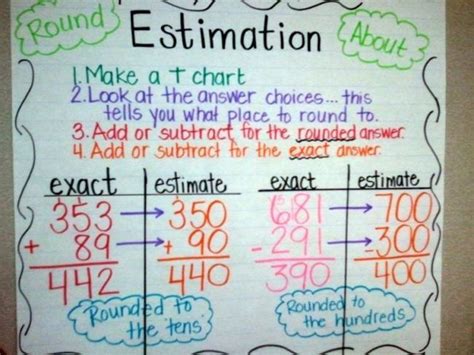 Round Estimation About
1. Make a T chart
2. Look at the answer choices... this
tells you what place to round to.
3. Add or subtract for the rounded answer.
4. Add or subtract for the exact answer.
exact estimate exact estimate
353 → 350 681 → 700
+ 89 → + 90 - 291 → - 300
442 440 390 400
Rounded to
the tens.
Rounded to
the hundreds.